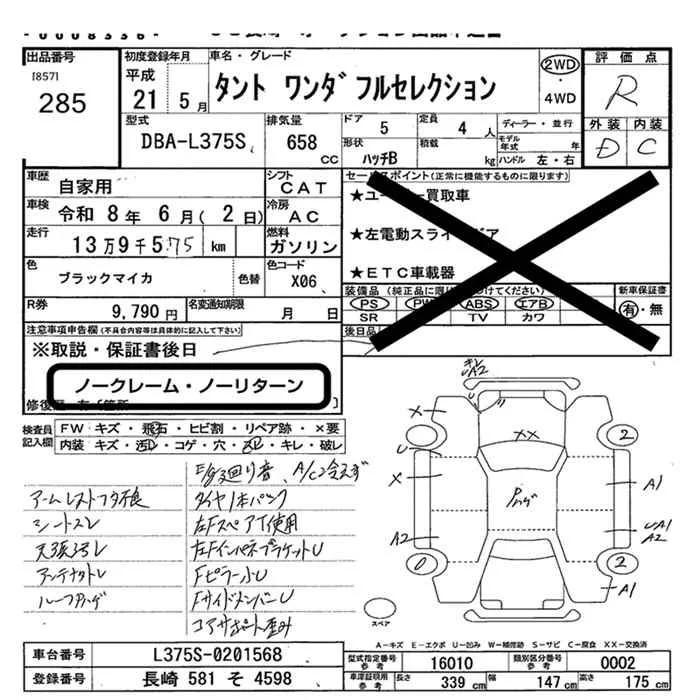 出品番号
[857]
285
初度登録年月
平成
21 5月
車名・グレード
タント ワンダフルセレクション
2WD
・
4WD
評価点
R
外装 内装
D C
型式
DBA-L375S
排気量
658
CC
ドア
5
定員
4 人
ディーラー・並行
形状
ハッチB
積載
kg
モデル
年式 年
ハンドル 左・右
車歴
自家用
シフト
CAT
車検
令和 8年 6月( 2日)
冷房
AC
走行
13万9千575 km
燃料
ガソリン
色
ブラックマイカ
色替
色コード
X06
R券
9,790 円
名変通知期限
月 日
セールスポイント(正常に機能するものに限ります)
★ユーザー買取車
★左電動スライドドア
★ETC車載器
新車保証書
PS PW ABS エアB
有・無
SR TV カワ
後日品
注意事項申告欄(不具合内容等は具体的に記入して下さい)
※取説・保証書後日
ノークレーム・ノーリターン
検査員
記入欄
FW キズ・飛石・ヒビ割・リペア跡・×要
内装 キズ・汚レ・コゲ・穴・スレ・キレ・破レ
E/g廻り音、A/C冷えず
アームレストフタ不良
タイヤ1本パンク
シートスレ
左Fスペアタイヤ使用
天張汚レ
左FインパネブラケットU
アンテナトレ
Fピラー小U
FサイドメンバーU
コアサポート歪み
キレ
A2
×
U
××
2
×
A1
UA1
A2
A2
0
2
A1
スペア
A-キズ E-エクボ U-凹み W-補修跡 S-サビ C-腐食 XX-交換済
車台番号
L375S-0201568
型式指定番号
参考
16010
類別区分番号
参考
0002
登録番号
長崎 581 そ 4598
車庫証明用
参考
長さ
339 cm
幅
147 cm
高さ
175 cm